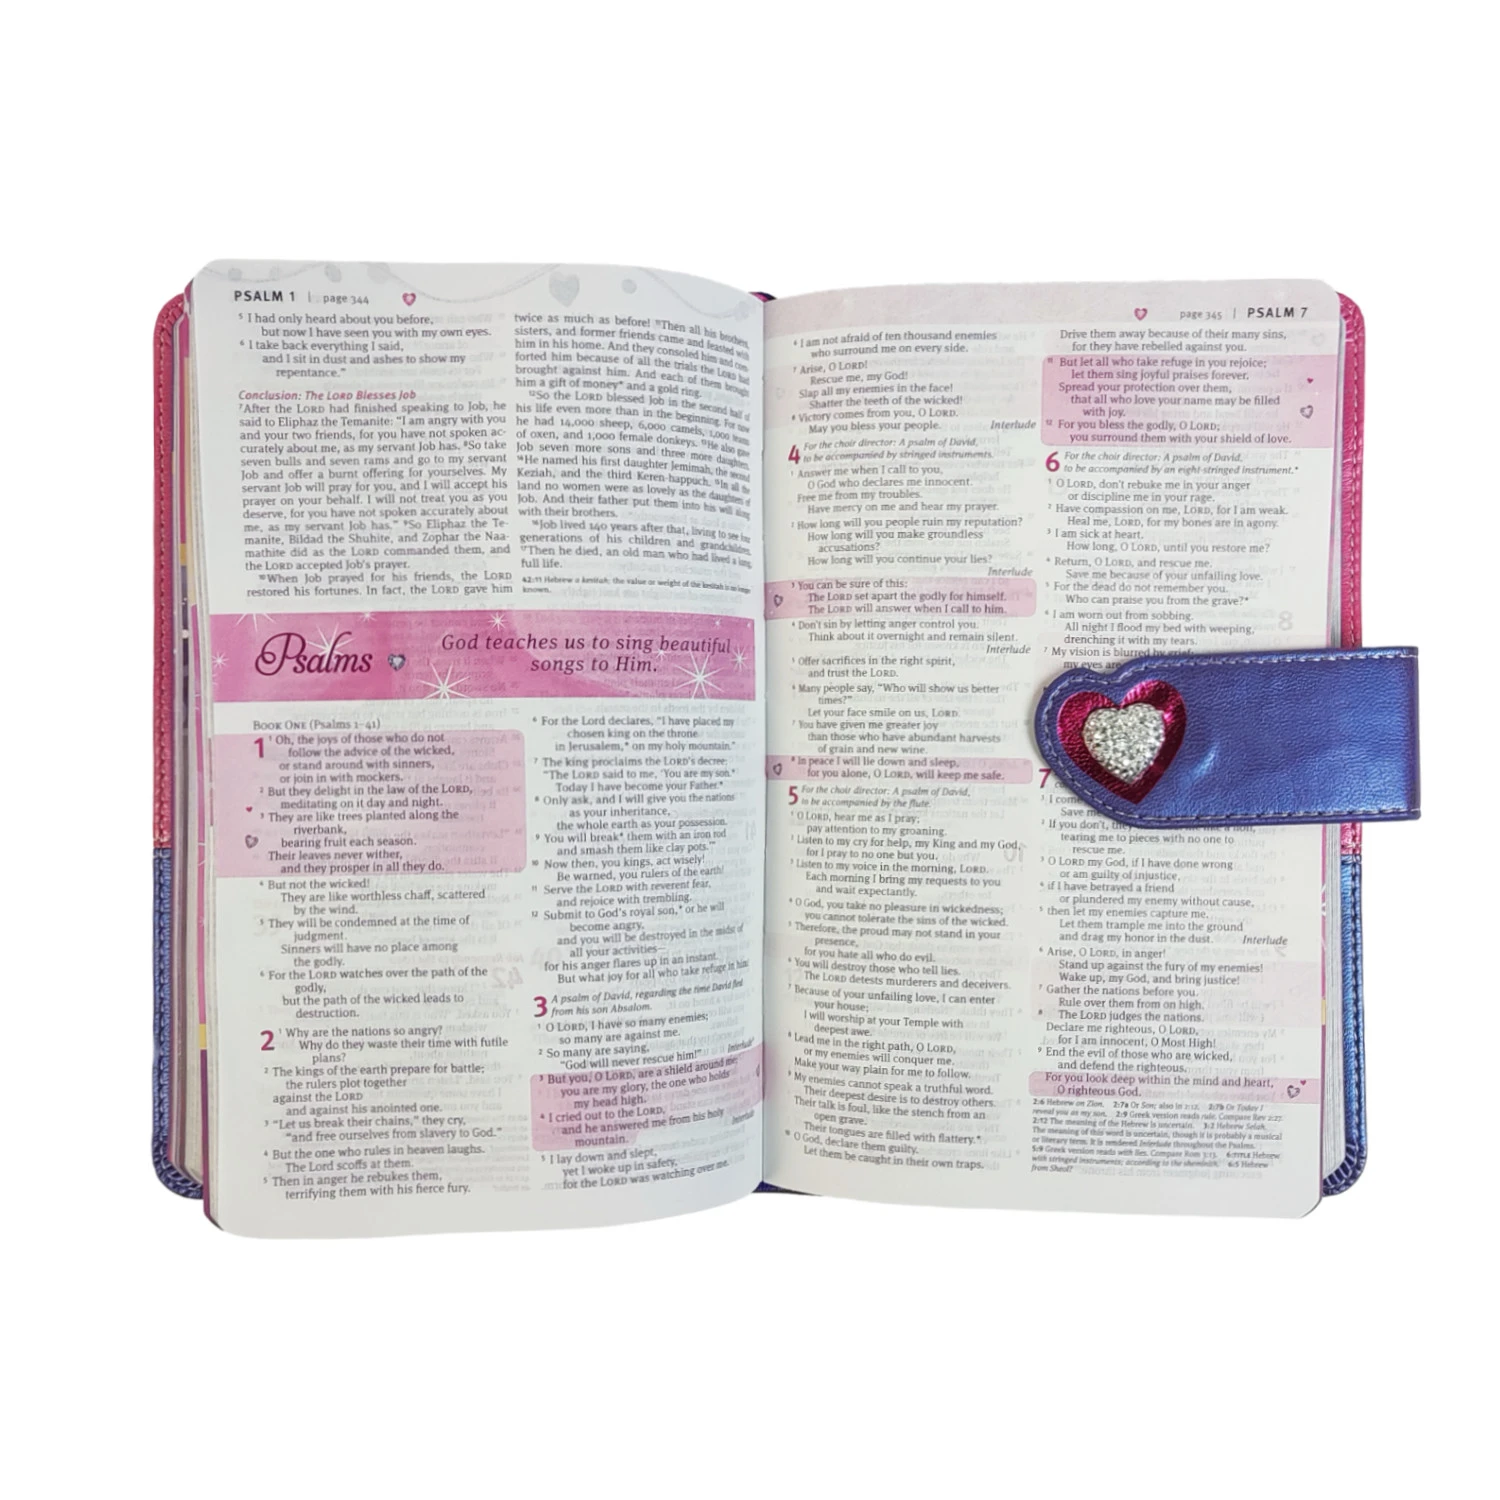 PSALM 1 | page 344
5 I had only heard about you before,
but now I have seen you with my own eyes.
6 I take back everything I said,
and I sit in dust and ashes to show my
repentance."
Conclusion: The LORD Blesses Job
7 After the LORD had finished speaking to Job, he
said to Eliphaz the Temanite: "I am angry with you
and your two friends, for you have not spoken ac-
curately about me, as my servant Job has. 8 So take
seven bulls and seven rams and go to my servant
Job and offer a burnt offering for yourselves. My
servant Job will pray for you, and I will accept his
prayer on your behalf. I will not treat you as you
deserve, for you have not spoken accurately about
me, as my servant Job has." 9 So Eliphaz the Te-
manite, Bildad the Shuhite, and Zophar the Naa-
mathite did as the LORD commanded them, and
the LORD accepted Job's prayer.
10 When Job prayed for his friends, the LORD
restored his fortunes. In fact, the LORD gave him
twice as much as before! 11 Then all his brothers,
sisters, and former friends came and feasted with
him in his home. And they consoled him and com-
forted him because of all the trials the LORD had
brought against him. And each of them brought
him a gift of money* and a gold ring.
12 So the LORD blessed Job in the second half of
his life even more than in the beginning. For now
he had 14,000 sheep, 6,000 camels, 1,000 teams
of oxen, and 1,000 female donkeys. 13 He also gave
Job seven more sons and three more daughters.
14 He named his first daughter Jemimah, the second
Keziah, and the third Keren-happuch. 15 In all the
land no women were as lovely as the daughters of
Job. And their father put them into his will along
with their brothers.
16 Job lived 140 years after that, living to see four
generations of his children and grandchildren.
17 Then he died, an old man who had lived a long,
full life.
42:11 Hebrew a kesitah; the value or weight of the kesitah is no longer
known.
Psalms
God teaches us to sing beautiful
songs to Him.
BOOK ONE (Psalms 1-41)
1 1 Oh, the joys of those who do not
follow the advice of the wicked,
or stand around with sinners,
or join in with mockers.
2 But they delight in the law of the LORD,
meditating on it day and night.
3 They are like trees planted along the
riverbank,
bearing fruit each season.
Their leaves never wither,
and they prosper in all they do.
4 But not the wicked!
They are like worthless chaff, scattered
by the wind.
5 They will be condemned at the time of
judgment.
Sinners will have no place among
the godly.
6 For the LORD watches over the path of the
godly,
but the path of the wicked leads to
destruction.
2 1 Why are the nations so angry?
Why do they waste their time with futile
plans?
2 The kings of the earth prepare for battle;
the rulers plot together
against the LORD
and against his anointed one.
3 "Let us break their chains," they cry,
"and free ourselves from slavery to God."
4 But the one who rules in heaven laughs.
The Lord scoffs at them.
5 Then in anger he rebukes them,
terrifying them with his fierce fury.
6 For the Lord declares, "I have placed my
chosen king on the throne
in Jerusalem,* on my holy mountain."
7 The king proclaims the LORD's decree:
"The LORD said to me, 'You are my son.*
Today I have become your Father.*
8 Only ask, and I will give you the nations
as your inheritance,
the whole earth as your possession.
9 You will break* them with an iron rod
and smash them like clay pots.'"
10 Now then, you kings, act wisely!
Be warned, you rulers of the earth!
11 Serve the LORD with reverent fear,
and rejoice with trembling.
12 Submit to God's royal son,* or he will
become angry,
and you will be destroyed in the midst of
all your activities—
for his anger flares up in an instant.
But what joy for all who take refuge in him!
3 A psalm of David, regarding the time David fled
from his son Absalom.
1 O LORD, I have so many enemies;
so many are against me.
2 So many are saying,
"God will never rescue him!" Interlude*
3 But you, O LORD, are a shield around me;
you are my glory, the one who holds
my head high.
4 I cried out to the LORD,
and he answered me from his holy
mountain. Interlude
5 I lay down and slept,
yet I woke up in safety,
for the LORD was watching over me.
page 345 | PSALM 7
6 I am not afraid of ten thousand enemies
who surround me on every side.
7 Arise, O LORD!
Rescue me, my God!
Slap all my enemies in the face!
Shatter the teeth of the wicked!
8 Victory comes from you, O LORD.
May you bless your people. Interlude
4 For the choir director: A psalm of David,
to be accompanied by stringed instruments.
1 Answer me when I call to you,
O God who declares me innocent.
Free me from my troubles.
Have mercy on me and hear my prayer.
2 How long will you people ruin my reputation?
How long will you make groundless
accusations?
How long will you continue your lies?
Interlude
3 You can be sure of this:
The LORD set apart the godly for himself.
The LORD will answer when I call to him.
4 Don't sin by letting anger control you.
Think about it overnight and remain silent.
Interlude
5 Offer sacrifices in the right spirit,
and trust the LORD.
6 Many people say, "Who will show us better
times?"
Let your face smile on us, LORD.
7 You have given me greater joy
than those who have abundant harvests
of grain and new wine.
8 In peace I will lie down and sleep,
for you alone, O LORD, will keep me safe.
5 For the choir director: A psalm of David,
to be accompanied by the flute.
1 O LORD, hear me as I pray;
pay attention to my groaning.
2 Listen to my cry for help, my King and my God,
for I pray to no one but you.
3 Listen to my voice in the morning, LORD.
Each morning I bring my requests to you
and wait expectantly.
4 O God, you take no pleasure in wickedness;
you cannot tolerate the sins of the wicked.
5 Therefore, the proud may not stand in your
presence,
for you hate all who do evil.
6 You will destroy those who tell lies.
The LORD detests murderers and deceivers.
7 Because of your unfailing love, I can enter
your house;
I will worship at your Temple with
deepest awe.
8 Lead me in the right path, O LORD,
or my enemies will conquer me.
Make your way plain for me to follow.
9 My enemies cannot speak a truthful word.
Their deepest desire is to destroy others.
Their talk is foul, like the stench from an
open grave.
Their tongues are filled with flattery.*
10 O God, declare them guilty.
Let them be caught in their own traps.
Drive them away because of their many sins,
for they have rebelled against you.
11 But let all who take refuge in you rejoice;
let them sing joyful praises forever.
Spread your protection over them,
that all who love your name may be filled
with joy.
12 For you bless the godly, O LORD;
you surround them with your shield of love.
6 For the choir director: A psalm of David,
to be accompanied by an eight-stringed instrument.*
1 O LORD, don't rebuke me in your anger
or discipline me in your rage.
2 Have compassion on me, LORD, for I am weak.
Heal me, LORD, for my bones are in agony.
3 I am sick at heart.
How long, O LORD, until you restore me?
4 Return, O LORD, and rescue me.
Save me because of your unfailing love.
5 For the dead do not remember you.
Who can praise you from the grave?*
6 I am worn out from sobbing.
All night I flood my bed with weeping,
drenching it with my tears.
7 My vision is blurred by
my eyes are
7
1 I come
Save me
2 If you don't, they
tearing me to pieces with no one to
rescue me.
3 O LORD my God, if I have done wrong
or am guilty of injustice,
4 if I have betrayed a friend
or plundered my enemy without cause,
5 then let my enemies capture me.
Let them trample me into the ground
and drag my honor in the dust. Interlude
6 Arise, O LORD, in anger!
Stand up against the fury of my enemies!
Wake up, my God, and bring justice!
7 Gather the nations before you.
Rule over them from on high.
8 The LORD judges the nations.
Declare me righteous, O LORD,
for I am innocent, O Most High!
9 End the evil of those who are wicked,
and defend the righteous.
For you look deep within the mind and heart,
O righteous God.
2:6 Hebrew on Zion. 2:7a Or Son; also in 2:12. 2:7b Or Today I
reveal you as my son. 2:9 Greek version reads rule. Compare Rev 2:27.
2:12 The meaning of the Hebrew is uncertain. 3:2 Hebrew Selah.
The meaning of this word is uncertain, though it is probably a musical
or literary term. It is rendered Interlude throughout the Psalms.
5:9 Greek version reads with lies. Compare Rom 3:13. 6:TITLE Hebrew
with stringed instruments; according to the sheminith. 6:5 Hebrew
from Sheol?